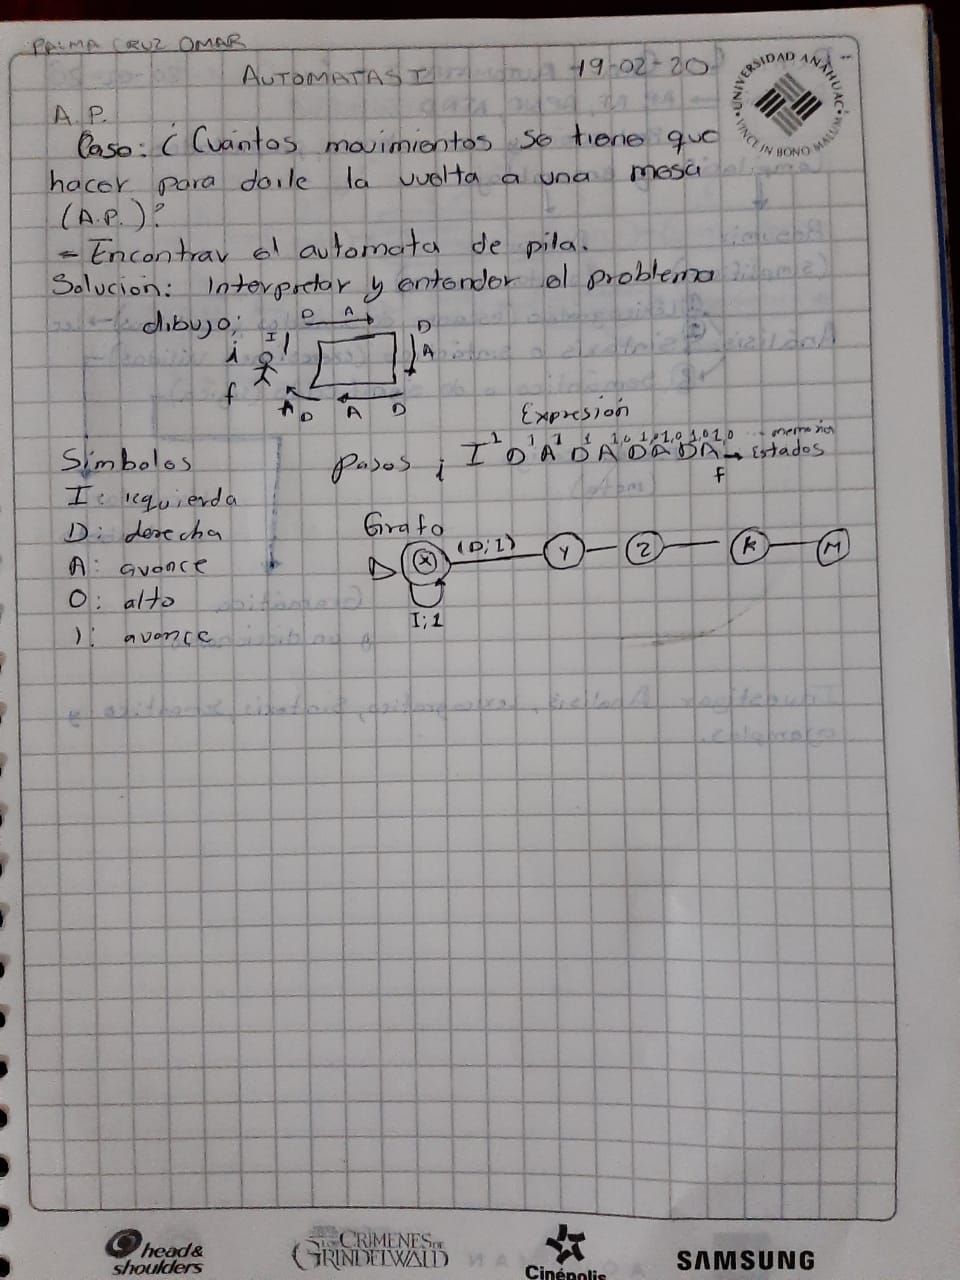 PALMA CRUZ OMAR
AUTOMATAS I 19-02-20
UNIVERSIDAD ANÁHUAC
VINCE IN BONO MALUM
A.P.
Caso: ¿Cuántos movimientos se tiene que
hacer para darle la vuelta a una mesa
(A.P.)?
- Encontrar el automata de pila.
Solución: Interpretar y entender el problema
dibujo:
D A
I
i D
A
f
A D A D
Expresión
1 1 1 1 1,0 1,0 1,0 1,0 memoria
Pasos i I D A D A D A D A → Estados
f
Símbolos
I: izquierda
D: derecha
A: avance
O: alto
1: avance
Grafo
(D;1)
X Y Z K M
I;1
head&
shoulders
CRÍMENES DE
GRINDELWALD
Cinépolis
SAMSUNG